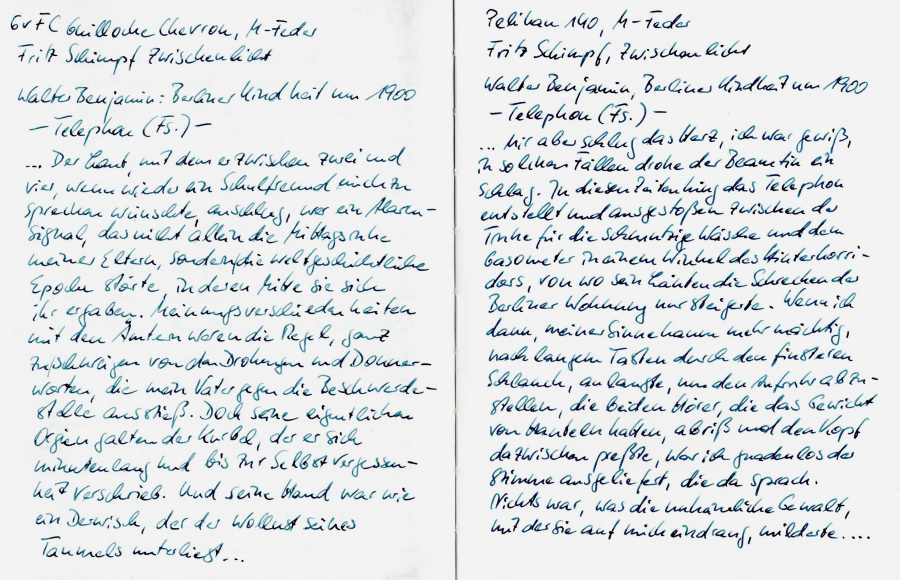 GvFC Guilloche Chevron, M-Feder
Fritz Schimpf Zwischenlicht
Walter Benjamin: Berliner Kindheit um 1900
- Telephon (Fs.) -
... Der Laut, mit dem er zwischen zwei und
vier, wenn wieder ein Schulfreund mich zu
sprechen wünschte, anschlug, war ein Alarm-
signal, das nicht allein die Mittagsruhe
meiner Eltern, sondern die weltgeschichtliche
Epoche störte, in deren Mitte sie sich
ihr ergaben. Meinungsverschiedenheiten
mit den Ämtern waren die Regel, ganz
zu schweigen von den Drohungen und Donner-
worten, die mein Vater gegen die Beschwerde-
stelle ausstieß. Doch seine eigentlichen
Orgien galten der Kurbel, der er sich
minutenlang und bis zur Selbstvergessen-
heit verschrieb. Und seine Hand war wie
ein Derwisch, der der Wollust seines
Taumels unterliegt...
Pelikan 140, M-Feder
Fritz Schimpf, Zwischenlicht
Walter Benjamin, Berliner Kindheit um 1900
- Telephon (Fs.) -
... Mir aber schlug das Herz, ich war gewiß,
in solchen Fällen drohe der Beamtin ein
Schlag. In diesen Zeiten hing das Telephon
entstellt und ausgestoßen zwischen der
Truhe für die schmutzige Wäsche und dem
Gasometer in einem Winkel des Hinterkorri-
dors, von wo sein Läuten die Schrecken der
Berliner Wohnung nur steigerte. Wenn ich
dann, meiner Sinne kaum mehr mächtig,
nach langem Tasten durch den finsteren
Schlauch, anlangte, um den Aufruhr abzu-
stellen, die beiden Hörer, die das Gewicht
von Hanteln hatten, abriß und den Kopf
dazwischen preßte, war ich gnadenlos der
Stimme ausgeliefert, die da sprach.
Nichts war, was die unheimliche Gewalt,
mit der sie auf mich eindrang, milderte....